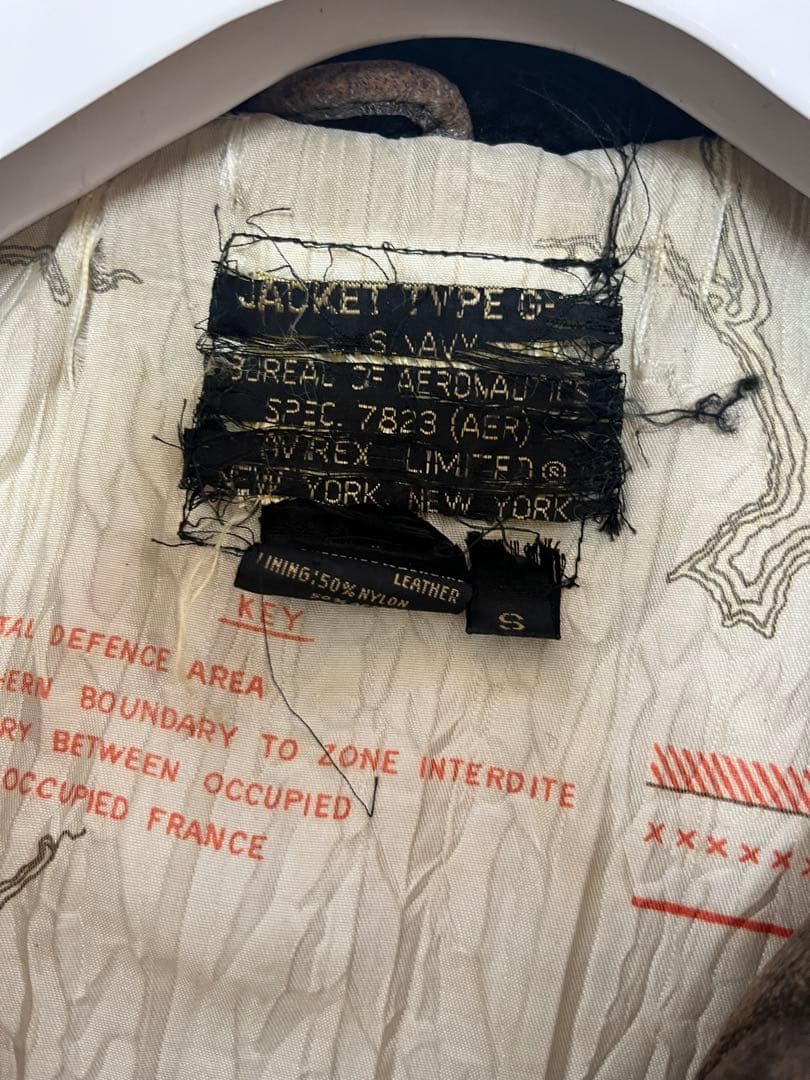 JACKET TYPE G-
S. NAVY
BUREAU OF AERONAUTICS
SPEC. 7823 (AER)
AVIREX LIMITED®
NEW YORK, NEW YORK
LEATHER
LINING: 50% NYLON
S
KEY
TAL DEFENCE AREA
HERN BOUNDARY TO ZONE INTERDITE
RY BETWEEN OCCUPIED
OCCUPIED FRANCE
XXXXXX